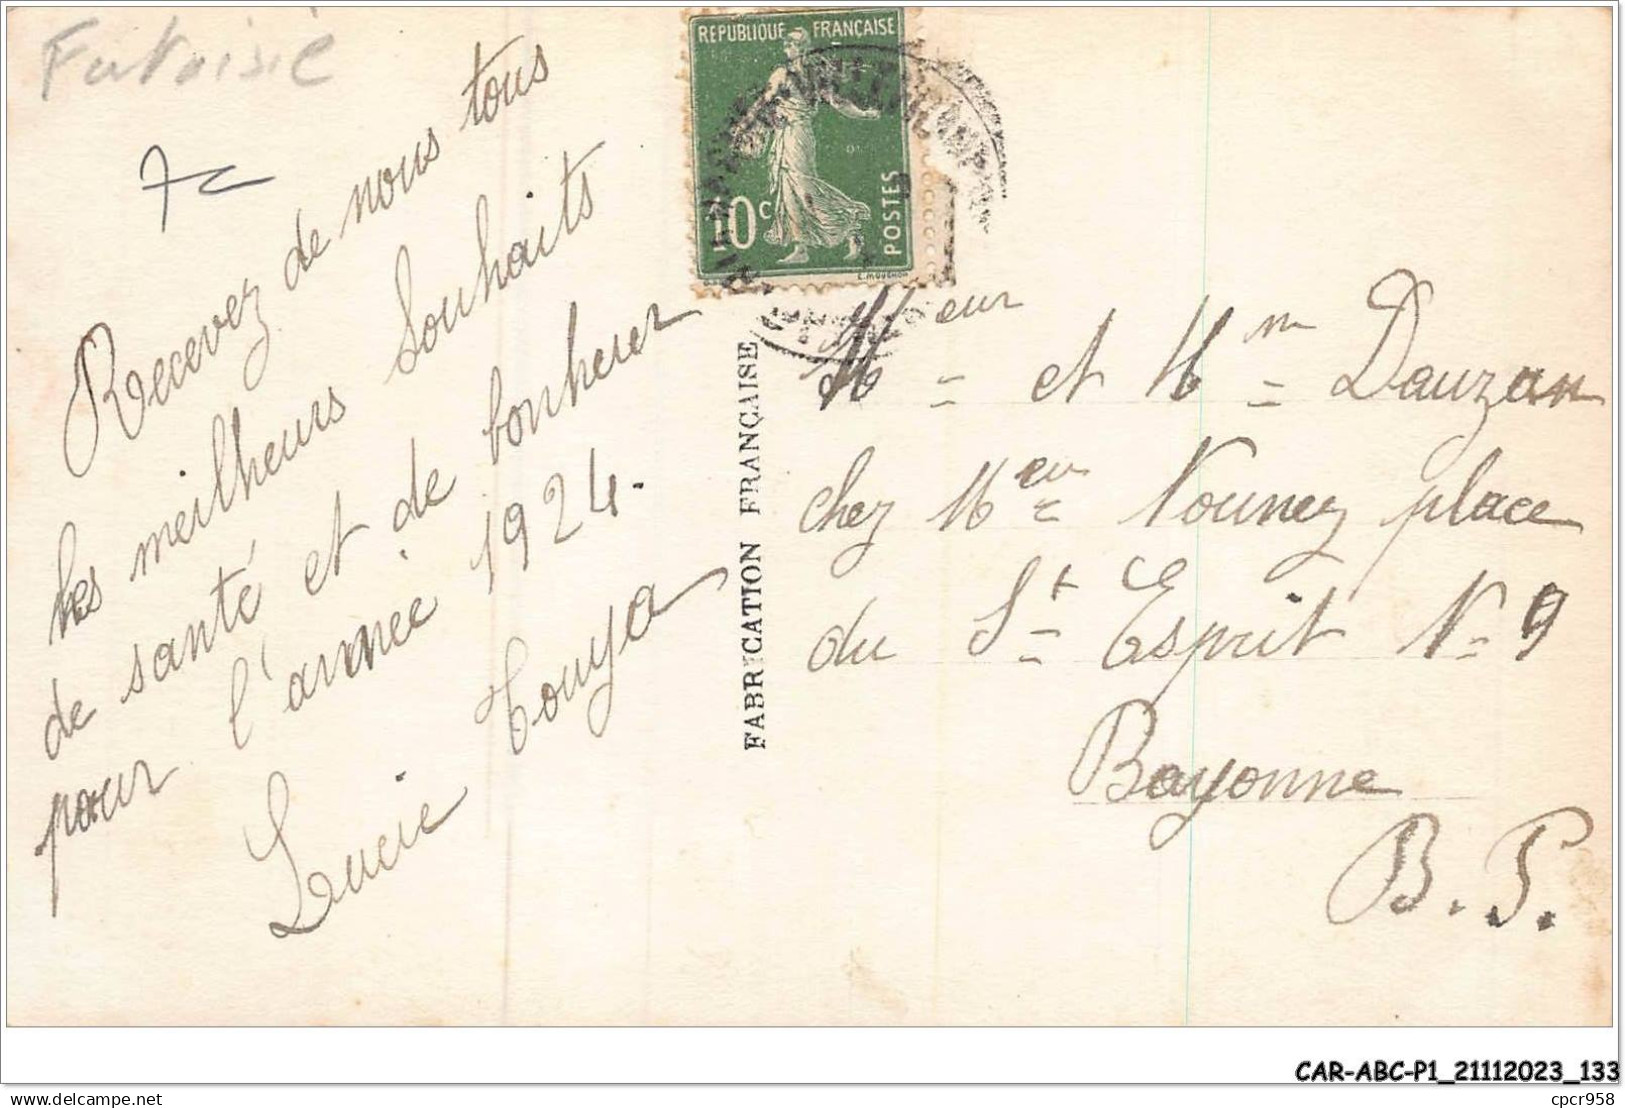 Fantaisie
Recevez de nous tous
les meilheurs Souhaits
de santé et de bonheur
pour l'année 1924.
Lucie Touya
REPUBLIQUE FRANÇAISE
10c
POSTES
FABRICATION FRANÇAISE
Mr eur = et Mm = Dauzan
chez Mr eur = Nounez place
du St = Esprit N= 9
Bayonne
B. P.
CAR-ABC-P1_21112023_133
delcampe.net
cpcr958